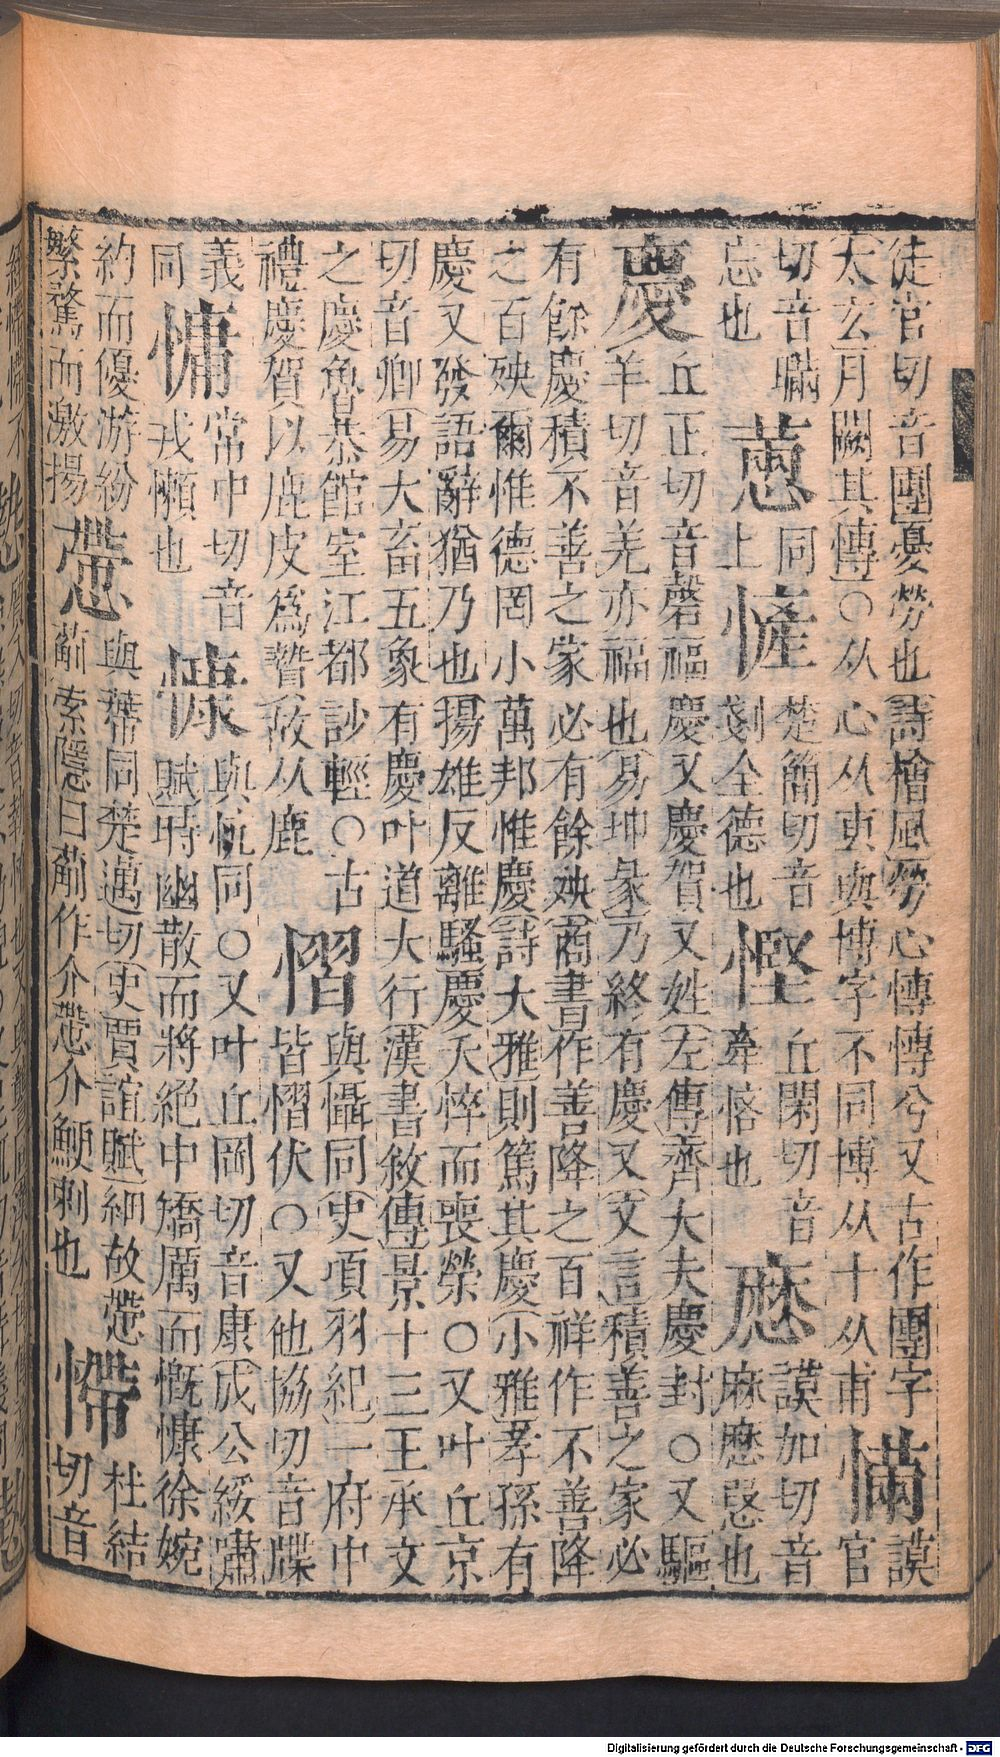 徒官切音團憂勞也詩檜風勞心慱慱兮又古作團字
太玄月闕其慱○从心从叀與博字不同博从十从甫
慲
謨
官
切音瞞
忘也
同
上
㦃
楚簡切音
剗全德也
慳
丘閑切音
牽悋也
謨加切音
麻惡也
慶
丘正切音磬福慶又慶賀又姓左傳齊大夫慶封○又驅
羊切音羌亦福也易坤彖乃終有慶又文言積善之家必
有餘慶積不善之家必有餘殃商書作善降之百祥作不善降
之百殃爾惟德罔小萬邦惟慶詩大雅則篤其慶小雅孝孫有
慶又發語辭猶乃也揚雄反離騷慶夭悴而喪榮○又叶丘京
切音卿易大畜五象有慶叶道大行漢書敘傳景十三王承文
之慶魯恭館室江都訬輕○古
禮慶賀以鹿皮爲贄故从鹿
慴
與懾同史項羽紀一府中
皆慴伏○又他協切音牒
義
同
慵
常中切音
戎懶也
慷
與忼同○又叶丘岡切音康成公綏嘯
賦時幽散而將絕中矯厲而慨慷徐婉
約而優游紛
繁騖而激揚
慸
與蔕同楚邁切史賈誼賦細故慸
薊索隱曰薊作介慸介鯁刺也
杜結
切音
Digitalisierung gefördert durch die Deutsche Forschungsgemeinschaft - DFG